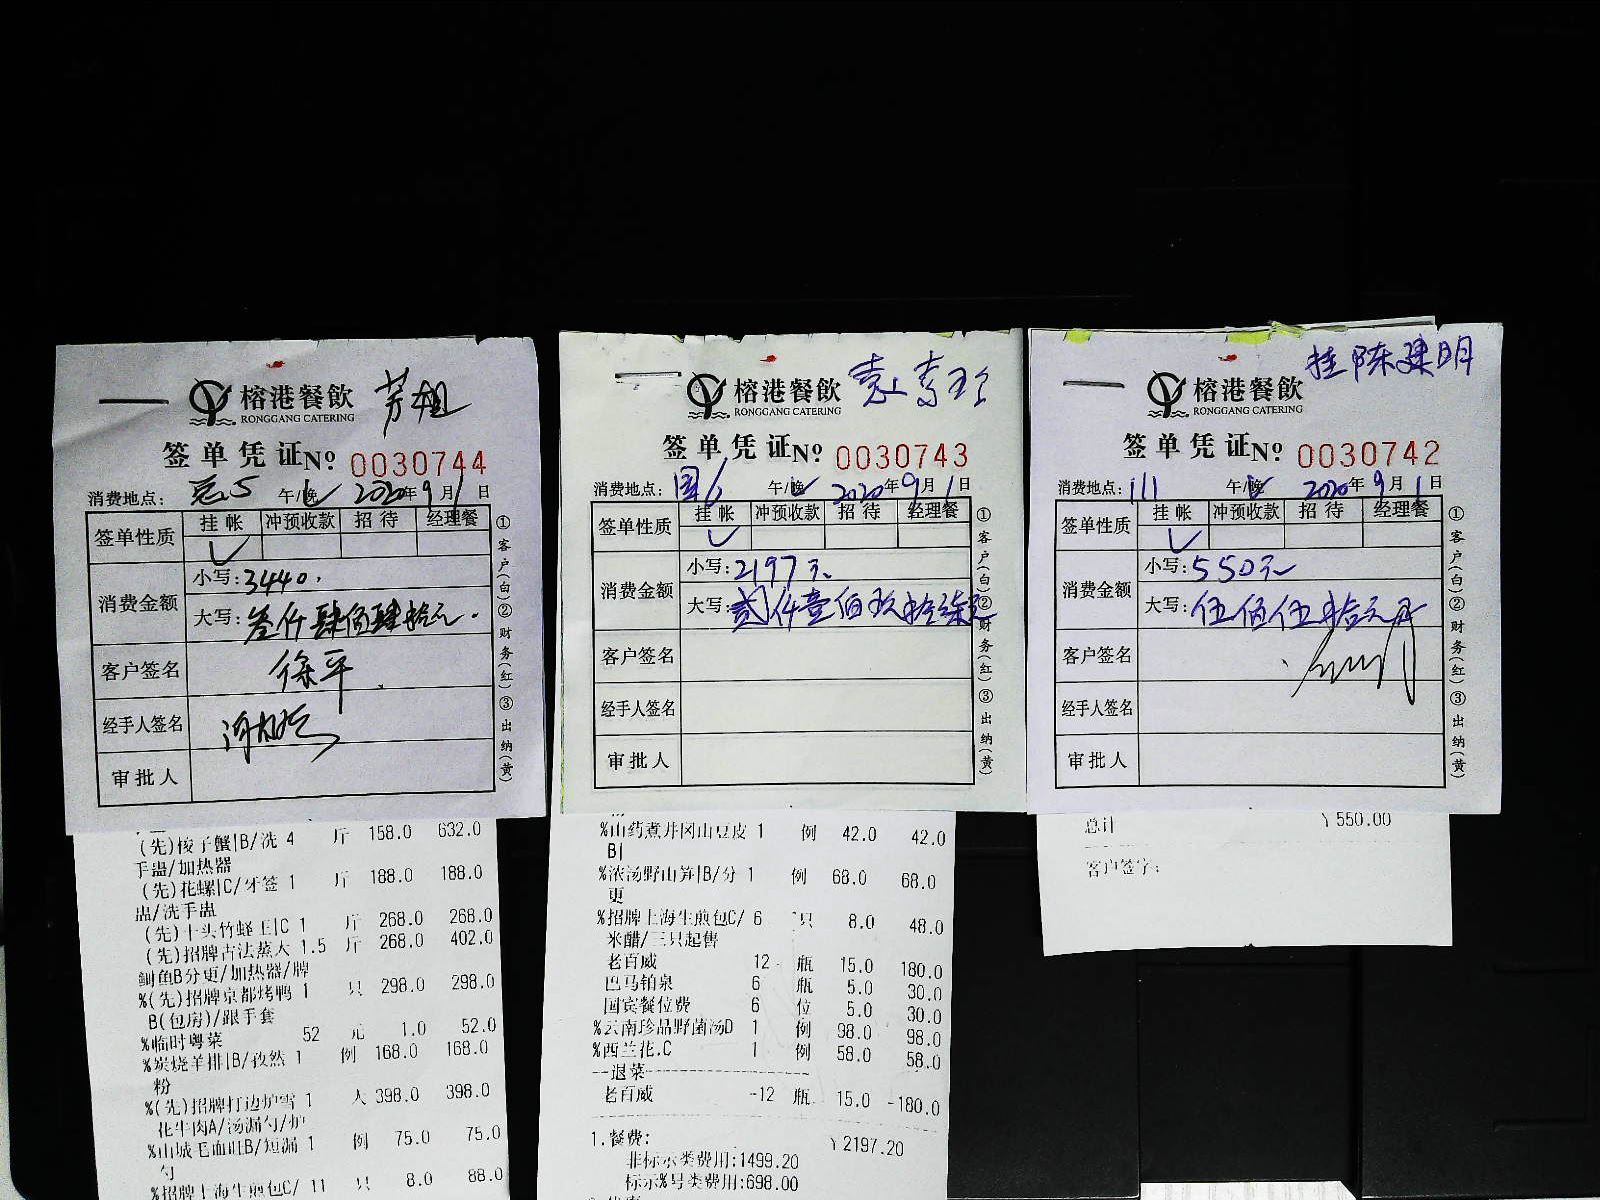 榕港餐飲 芳姐
RONGGANG CATERING
签单凭证No 0030744
消费地点: 午/晚 2020年9月1日
签单性质 挂帐 冲预收款 招待 经理餐
✓
消费金额 小写:3440.
大写:叁仟肆佰肆拾元.
客户签名 徐平
经手人签名
审批人
①客户(白)②财务(红)③出纳(黄)
(先)梭子蟹|B/洗 4 斤 158.0 632.0
手盅/加热器
(先)花螺|C/牙签 1 斤 188.0 188.0
盅/洗手盅
(先)十头竹蛏王|C 1 斤 268.0 268.0
(先)招牌古法蒸大 1.5 斤 268.0 402.0
鲥鱼B分更/加热器/牌
%(先)招牌京都烤鸭 1 只 298.0 298.0
B(包房)/跟手套
%临时粤菜 52 元 1.0 52.0
%炭烧羊排|B/孜然 1 例 168.0 168.0
粉
%(先)招牌打边炉雪 1 大 398.0 398.0
花牛肉A/汤漏勺/炉
%山城毛血旺B/短漏 1 例 75.0 75.0
勺
%招牌上海生煎包C/ 11 只 8.0 88.0
榕港餐飲
RONGGANG CATERING
签单凭证No 0030743
消费地点:国6 午/晚 2020年9月1日
签单性质 挂帐 冲预收款 招待 经理餐
✓
消费金额 小写:2197元
大写:贰仟壹佰玖拾柒元
客户签名
经手人签名
审批人
①客户(白)②财务(红)③出纳(黄)
%山药煮井冈山豆皮 1 例 42.0 42.0
B|
%浓汤野山笋|B/分 1 例 68.0 68.0
更
%招牌上海生煎包C/ 6 只 8.0 48.0
米醋/三只起售
老百威 12 瓶 15.0 180.0
巴马铂泉 6 瓶 5.0 30.0
国宾餐位费 6 位 5.0 30.0
%云南珍品野菌汤D 1 例 98.0 98.0
%西兰花.C 1 例 58.0 58.0
---退菜---
老百威 -12 瓶 15.0 -180.0
1.餐费: ¥2197.20
非标示类费用:1499.20
标示%号类费用:698.00
挂陈建明
榕港餐飲
RONGGANG CATERING
签单凭证No 0030742
消费地点:111 午/晚 2020年9月1日
签单性质 挂帐 冲预收款 招待 经理餐
✓
消费金额 小写:550元
大写:伍佰伍拾元正
客户签名
经手人签名
审批人
①客户(白)②财务(红)③出纳(黄)
总计 ¥550.00
客户签字: